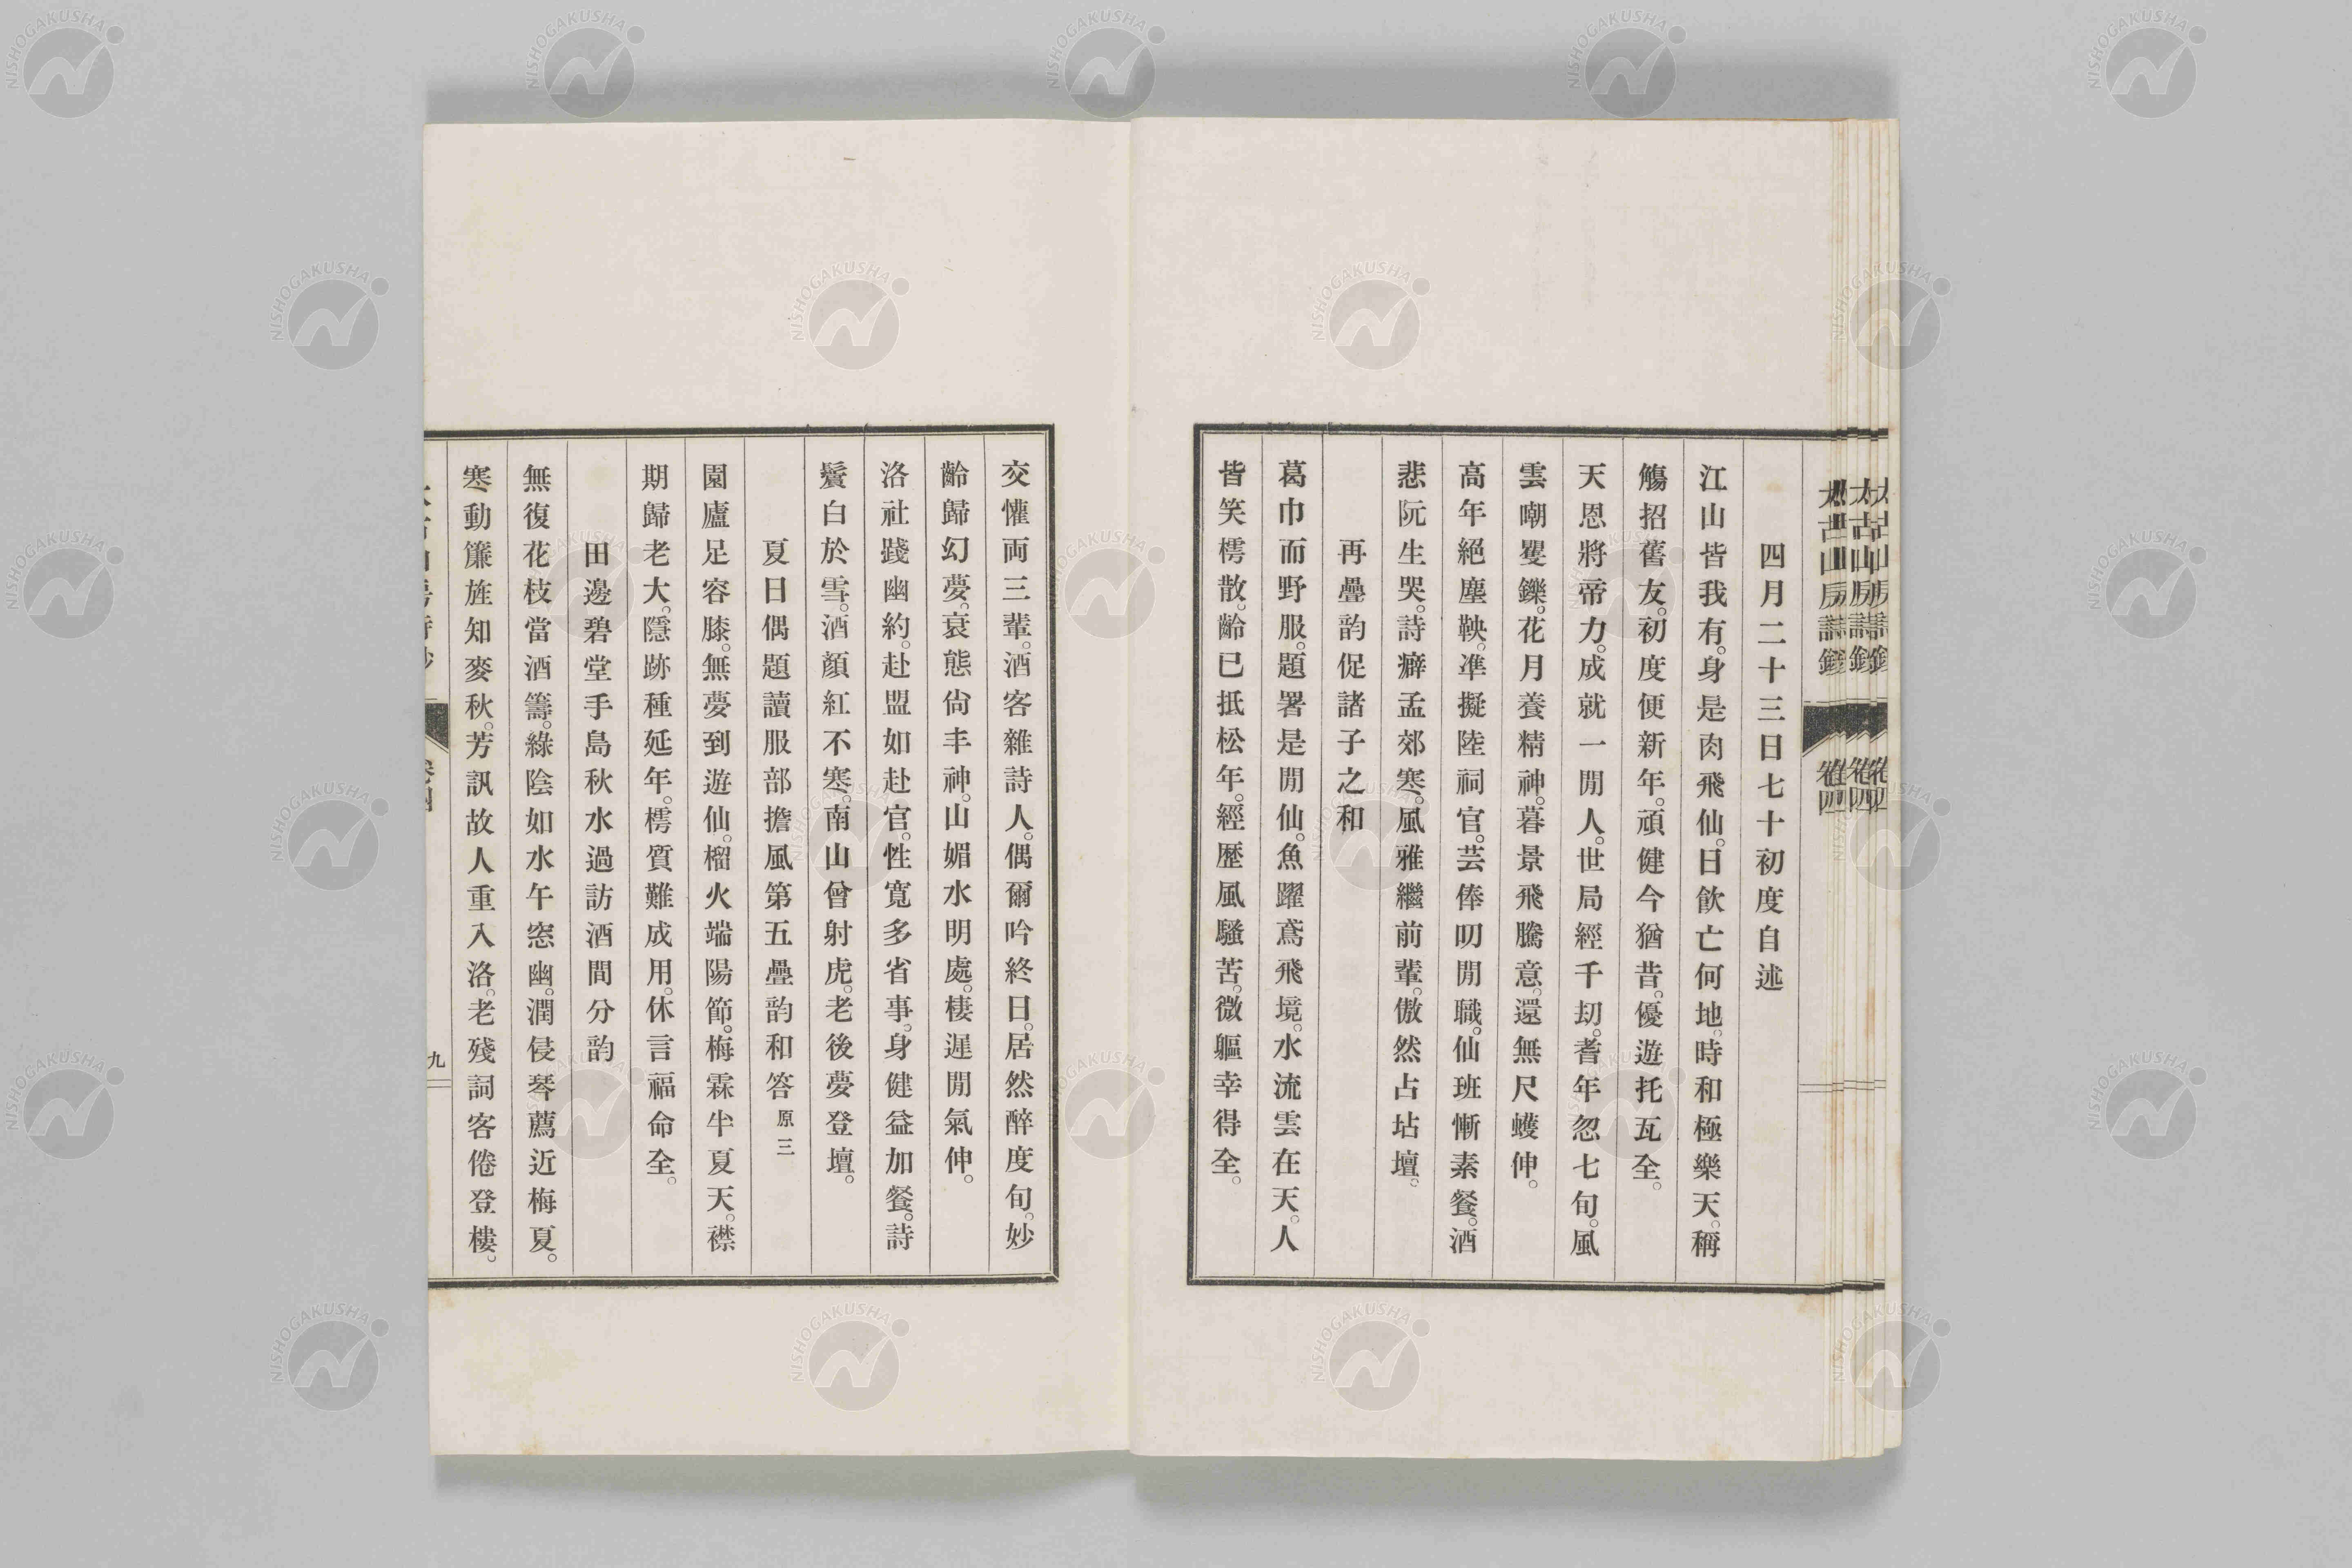 四月二十三日七十初度自述
江山皆我有。身是肉飛仙。日飲亡何地。時和極樂天。稱
觴招舊友。初度便新年。頑健今猶昔。優遊托瓦全。
天恩將帝力。成就一閒人。世局經千刧。耆年忽七旬。風
雲嘲矍鑠。花月養精神。暮景飛騰意。還無尺蠖伸。
高年絕塵鞅。準擬陸祠官。芸俸叨閒職。仙班慚素餐。酒
悲阮生哭。詩癖孟郊寒。風雅繼前輩。傲然占坫壇。
再疊韵促諸子之和
葛巾而野服。題署是閒仙。魚躍鳶飛境。水流雲在天。人
皆笑樗散。齡已抵松年。經歷風騷苦。微軀幸得全。
交懽両三輩。酒客雜詩人。偶爾吟終日。居然醉度旬。妙
齡歸幻夢。衰態尙丰神。山媚水明處。棲遲閒氣伸。
洛社踐幽約。赴盟如赴官。性寬多省事。身健益加餐。詩
鬢白於雪。酒顏紅不寒。南山曾射虎。老後夢登壇。
夏日偶題讀服部擔風第五疊韵和答原三
園廬足容膝。無夢到遊仙。榴火端陽節。梅霖半夏天。襟
期歸老大。隱跡種延年。樗質難成用。休言福命全。
田邊碧堂手島秋水過訪酒間分韵
無復花枝當酒籌。綠陰如水午窓幽。潤侵琴薦近梅夏。
寒動簾旌知麥秋。芳訊故人重入洛。老殘詞客倦登樓。
九